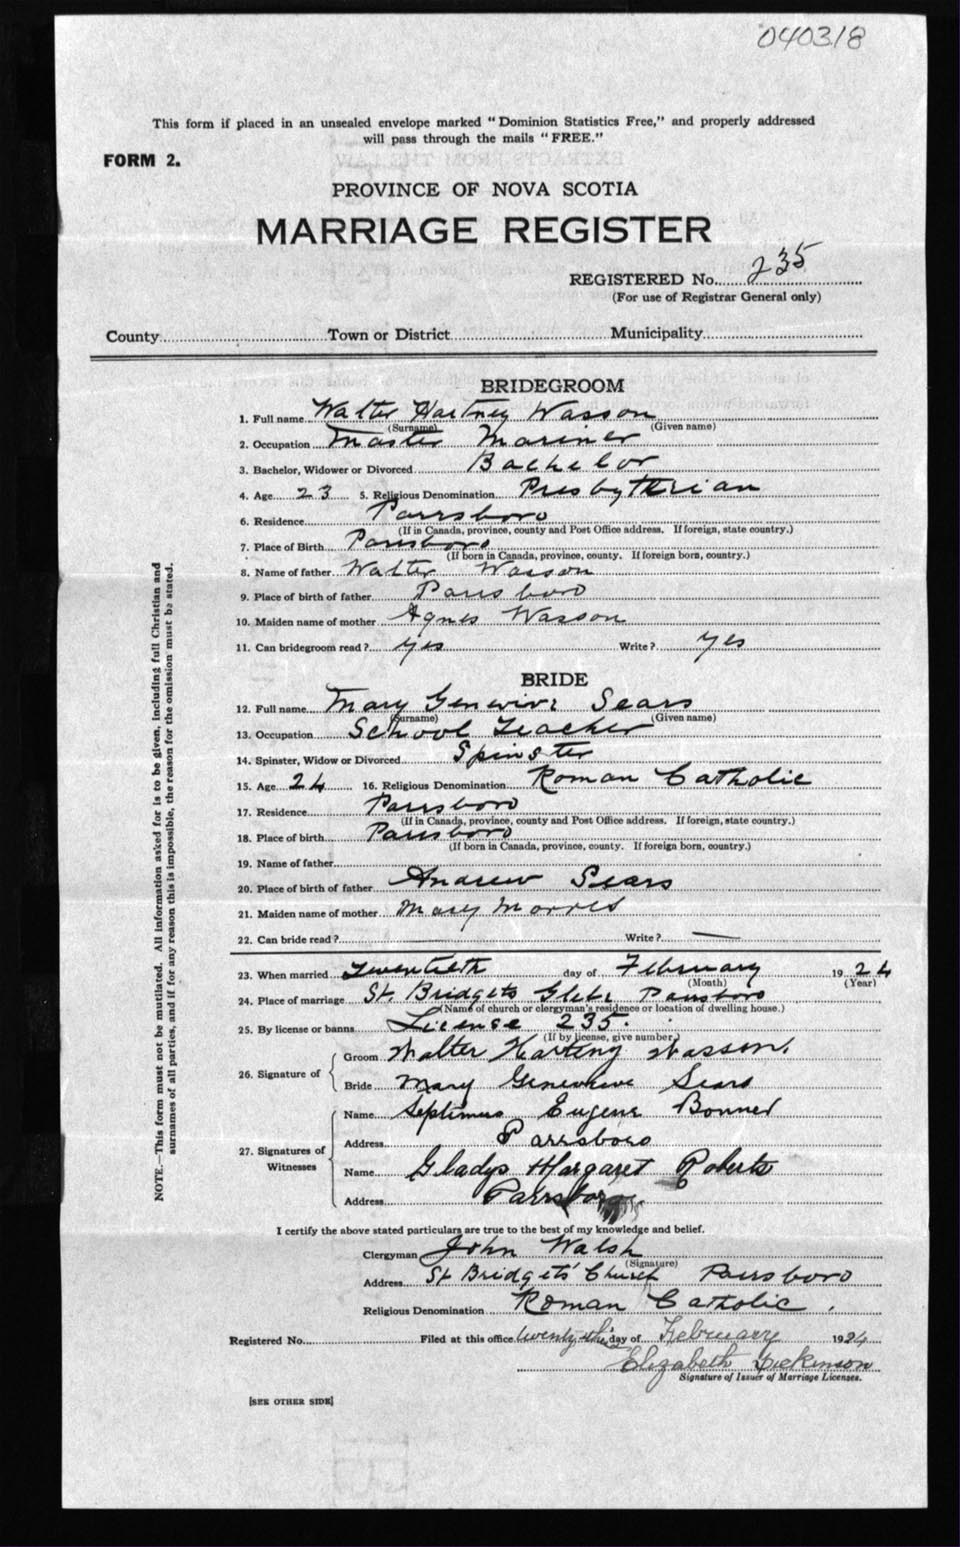 040318
This form if placed in an unsealed envelope marked "Dominion Statistics Free," and properly addressed
will pass through the mails "FREE."
FORM 2.
PROVINCE OF NOVA SCOTIA
MARRIAGE REGISTER
REGISTERED No. 235
(For use of Registrar General only)
County Town or District Municipality
BRIDEGROOM
1. Full name Walter Hartney Wasson
(Surname) (Given name)
2. Occupation Master Mariner
3. Bachelor, Widower or Divorced Bachelor
4. Age 23 5. Religious Denomination Presbyterian
6. Residence Parrsboro
(If in Canada, province, county and Post Office address. If foreign, state country.)
7. Place of Birth Parrsboro
(If born in Canada, province, county. If foreign born, country.)
8. Name of father Walter Wasson
9. Place of birth of father Parrsboro
10. Maiden name of mother Agnes Wasson
11. Can bridegroom read? Yes Write? Yes
BRIDE
12. Full name Mary Genevive Sears
(Surname) (Given name)
13. Occupation School Teacher
14. Spinster, Widow or Divorced Spinster
15. Age 24 16. Religious Denomination Roman Catholic
17. Residence Parrsboro
(If in Canada, province, county and Post Office address. If foreign, state country.)
18. Place of birth Parrsboro
(If born in Canada, province, county. If foreign born, country.)
19. Name of father
20. Place of birth of father Andrew Sears
21. Maiden name of mother Mary Morris
22. Can bride read? — Write? —
23. When married Twentieth day of February 1924
(Month) (Year)
24. Place of marriage St. Bridgets Glebe Parrsboro
(Name of church or clergyman's residence or location of dwelling house.)
25. By license or banns License 235.
(If by license, give number)
26. Signature of Groom Walter Harting Wasson.
Bride Mary Genevieve Sears
27. Signatures of Witnesses Name Septimus Eugene Bonner
Address Parrsboro
Name Gladys Margaret Roberts
Address Parrsboro.
I certify the above stated particulars are true to the best of my knowledge and belief.
Clergyman John Walsh
(Signature)
Address St Bridgets' Church Parrsboro
Religious Denomination Roman Catholic.
Registered No. Filed at this office day of February 1924
Elizabeth Dickinson
Signature of Issuer of Marriage Licenses.
[SEE OTHER SIDE]
NOTE.—This form must not be mutilated. All information asked for is to be given, including full Christian and
surnames of all parties, and if for any reason this is impossible, the reason for the omission must be stated.